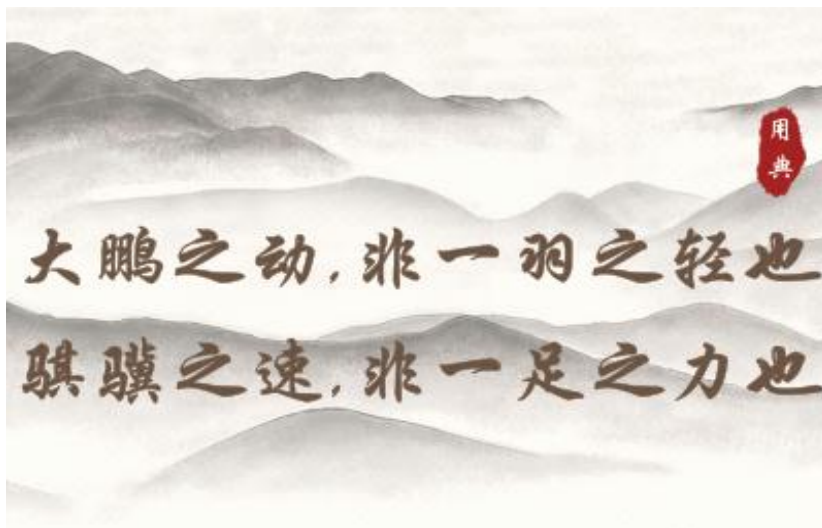 用典
大鹏之动,非一羽之轻也
骐骥之速,非一足之力也